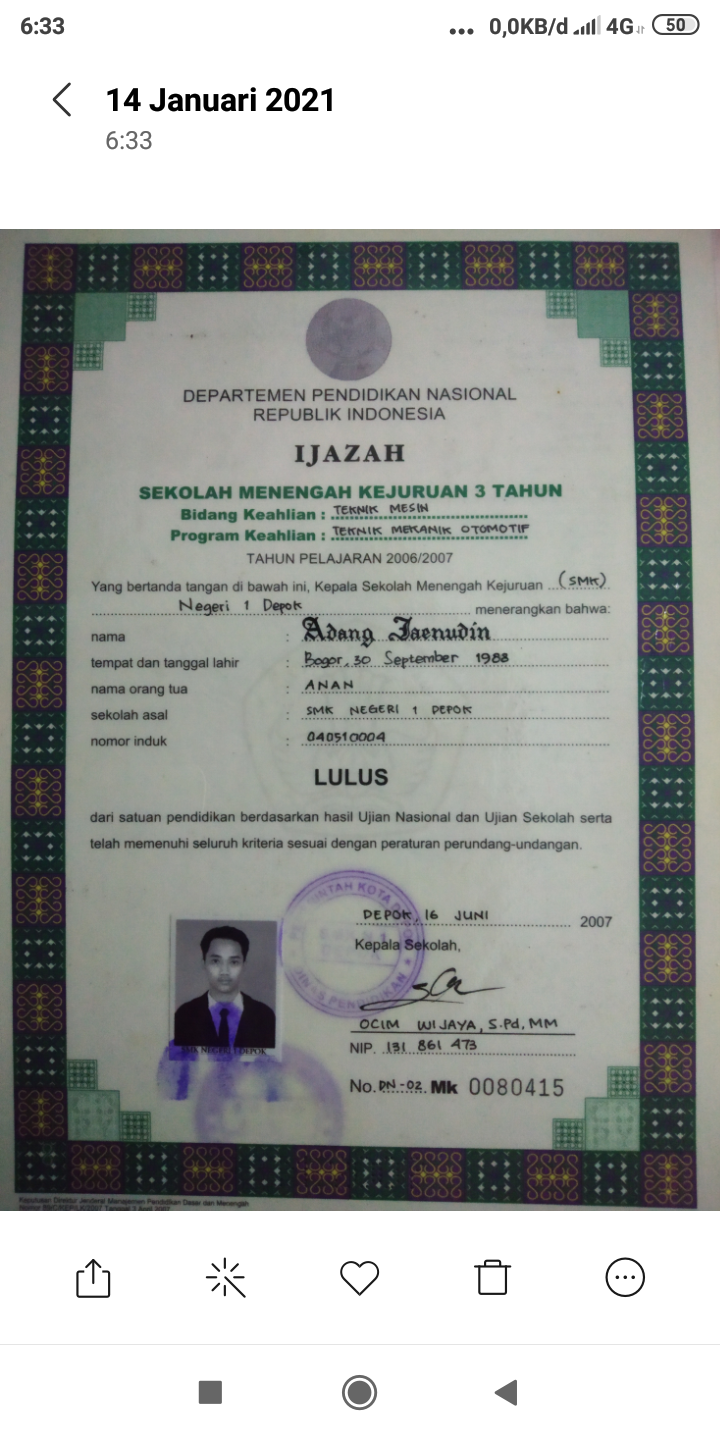 6:33
... 0,0KB/d 4G 50
14 Januari 2021
6:33
DEPARTEMEN PENDIDIKAN NASIONAL
REPUBLIK INDONESIA
IJAZAH
SEKOLAH MENENGAH KEJURUAN 3 TAHUN
Bidang Keahlian : TEKNIK MESIN
Program Keahlian : TEKNIK MEKANIK OTOMOTIF
TAHUN PELAJARAN 2006/2007
Yang bertanda tangan di bawah ini, Kepala Sekolah Menengah Kejuruan (SMK)
Negeri 1 Depok menerangkan bahwa:
nama : Adang Jaenudin
tempat dan tanggal lahir : Bogor, 30 September 1988
nama orang tua : ANAN
sekolah asal : SMK NEGERI 1 DEPOK
nomor induk : 040510004
LULUS
dari satuan pendidikan berdasarkan hasil Ujian Nasional dan Ujian Sekolah serta
telah memenuhi seluruh kriteria sesuai dengan peraturan perundang-undangan.
DEPOK, 16 JUNI 2007
Kepala Sekolah,
OCIM WIJAYA, S.Pd, MM
NIP. 131 861 473
No. DN-02 Mk 0080415
SMK NEGERI 1 DEPOK
DINAS PENDIDIKAN
Keputusan Direktur Jenderal Manajemen Pendidikan Dasar dan Menengah